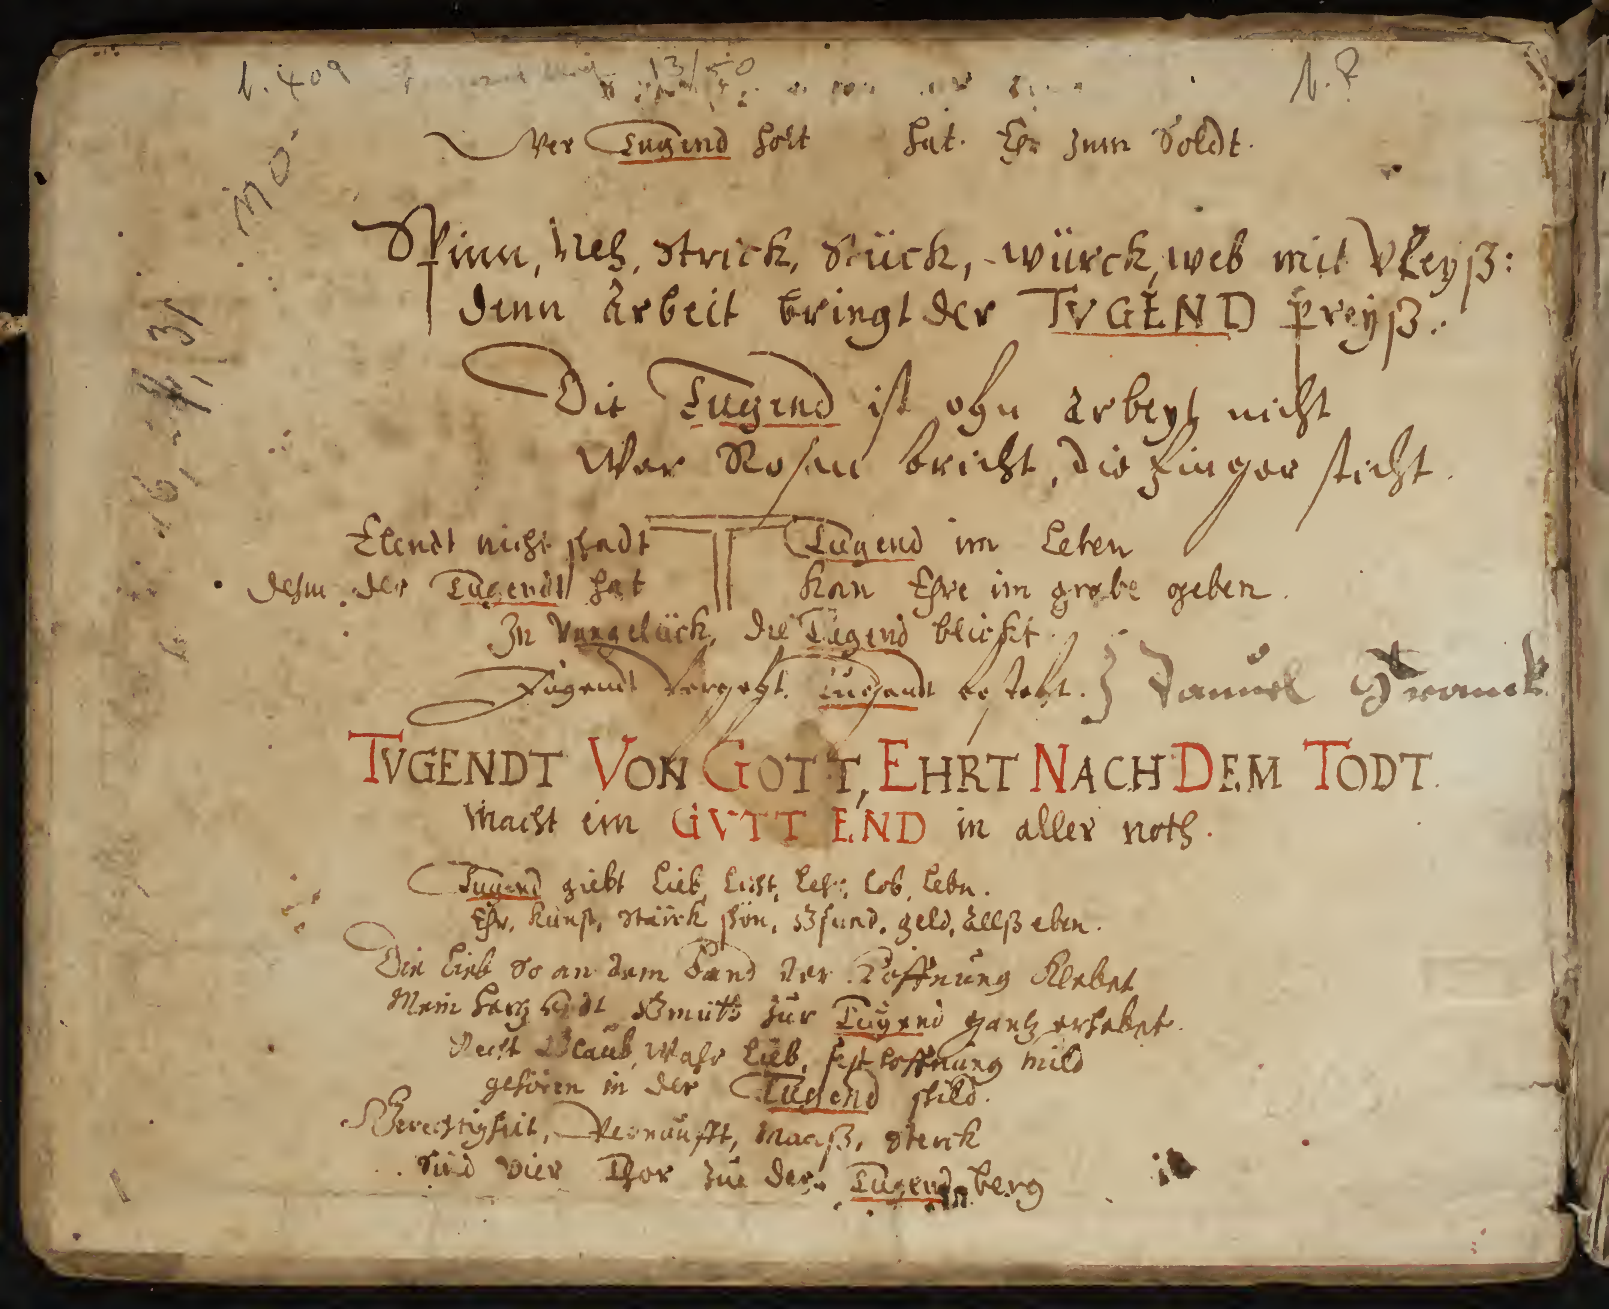 Wer Tugend holt hat Ehr zum Soldt.
Spinn, Neh, Strick, Stück, würck, web mit Vleyß:
denn Arbeit bringt der TVGEND preyß.
Die Tugend ist ohn Arbeyt nicht
Wer Rosen bricht, die Finger sticht.
Elendt nicht schadt
dehm der Tugendt hat
Tugend im Leben
kan Ehre im grabe geben.
In Vngelück, die Tugend blickt.
Jugendt vergeht, Tugendt besteht.
Daniel Franck
TVGENDT VON GOTT, EHRT NACH DEM TODT.
Macht ein GVTT END in aller noth.
Tugend giebt Lieb, Licht, Lehr, Lob, Lebn.
Ehr, Kunst, Stärck, schön, Gsund, geld, allß eben.
Die Lieb so an dem Hand der Hoffnung klebet
Mein Hertz Gmüth zur Tugend gantz erhebet.
Recht Glaub, Wahr Lieb, fest Hoffnung mild
gehören in der Tugend schild.
Gerechtigkeit, Vernunfft, Maaß, Sterck
Sind vier Thor zue der Tugend berg